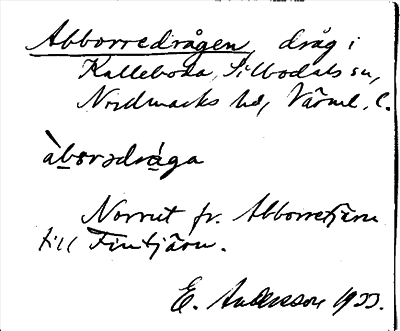 Abborredrågen, dråg i
Kalleboda, Silbodals sn,
Nordmarks hd, Värml. l.
àborədrága
Norrut fr. Abborretjärn
till Fintjärn.
E. Andersson 1933.